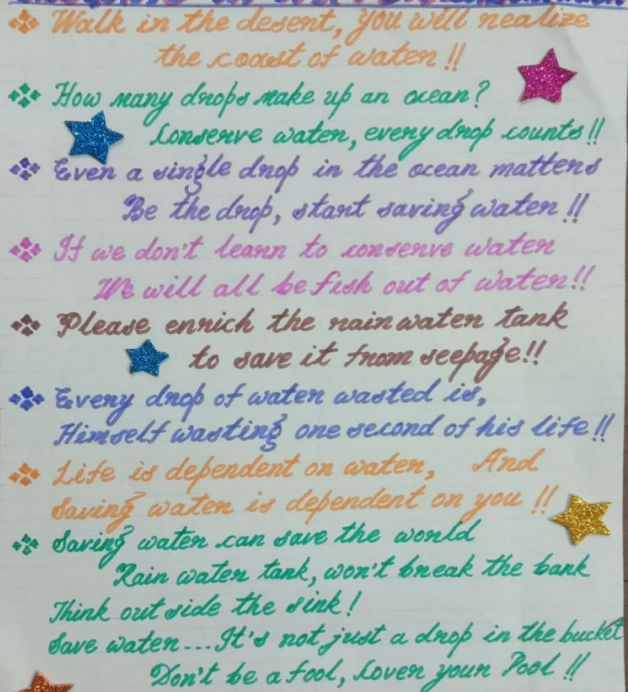 Walk in the desert, you will realize
the coast of water !!
How many drops make up an ocean?
Conserve water, every drop counts !!
Even a single drop in the ocean matters
Be the drop, start saving water !!
If we don't learn to conserve water
We will all be fish out of water!!
Please enrich the rain water tank
to save it from seepage!!
Every drop of water wasted is,
Himself wasting one second of his life !!
Life is dependent on water, And
Saving water is dependent on you !!
Saving water can save the world
Rain water tank, won't break the bank
Think out side the sink!
Save water...It's not just a drop in the bucket
Don't be a fool, Cover your Pool !!